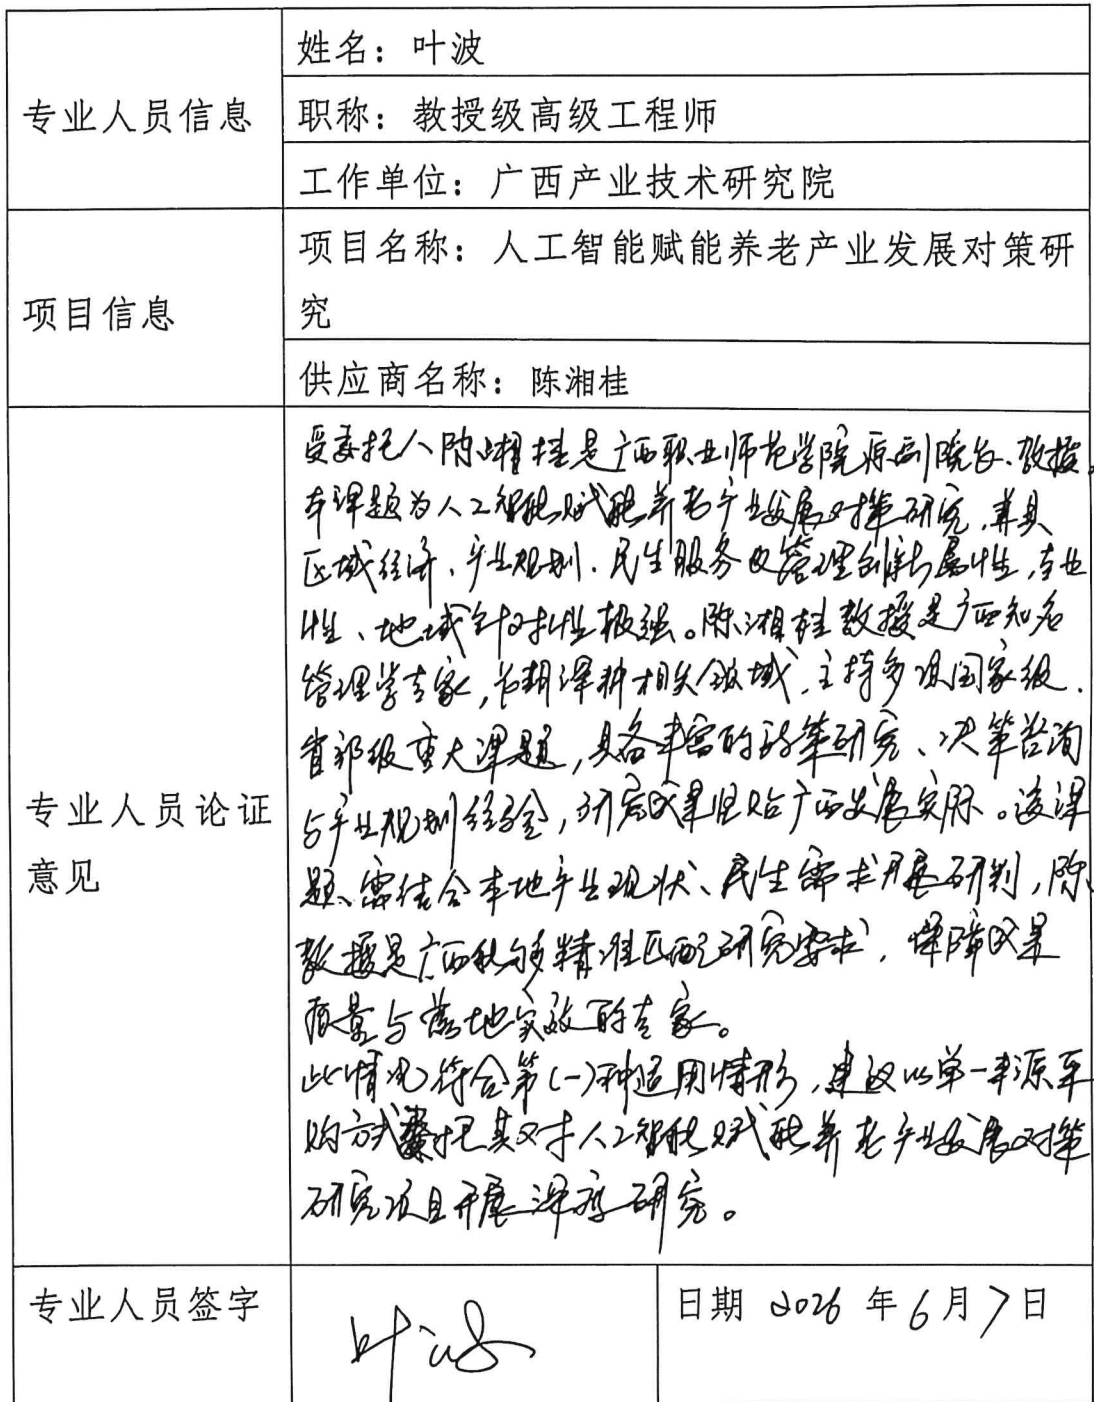 专业人员信息
姓名：叶波
职称：教授级高级工程师
工作单位：广西产业技术研究院
项目信息
项目名称：人工智能赋能养老产业发展对策研
究
供应商名称：陈湘桂
专业人员论证
意见
受委托人陈湘桂是广西职业师范学院原副院长、教授。
本课题为人工智能赋能养老产业发展对策研究，兼具
区域经济、产业规划、民生服务及管理创新属性，专业
性、地域针对性极强。陈湘桂教授是广西知名
管理学专家，长期深耕相关领域，主持多项国家级、
省部级重大课题，具备丰富的政策研究、决策咨询
与产业规划经验，研究成果紧贴广西发展实际。该课
题需结合本地产业现状、民生需求开展研判，陈
教授是广西能够精准匹配研究要求，保障成果
质量与落地实效的专家。
此情况符合第(一)种适用情形，建议以单一来源采
购方式委托其对人工智能赋能养老产业发展对策
研究项目开展深度研究。
专业人员签字
叶波
日期 2026 年 6 月 7 日